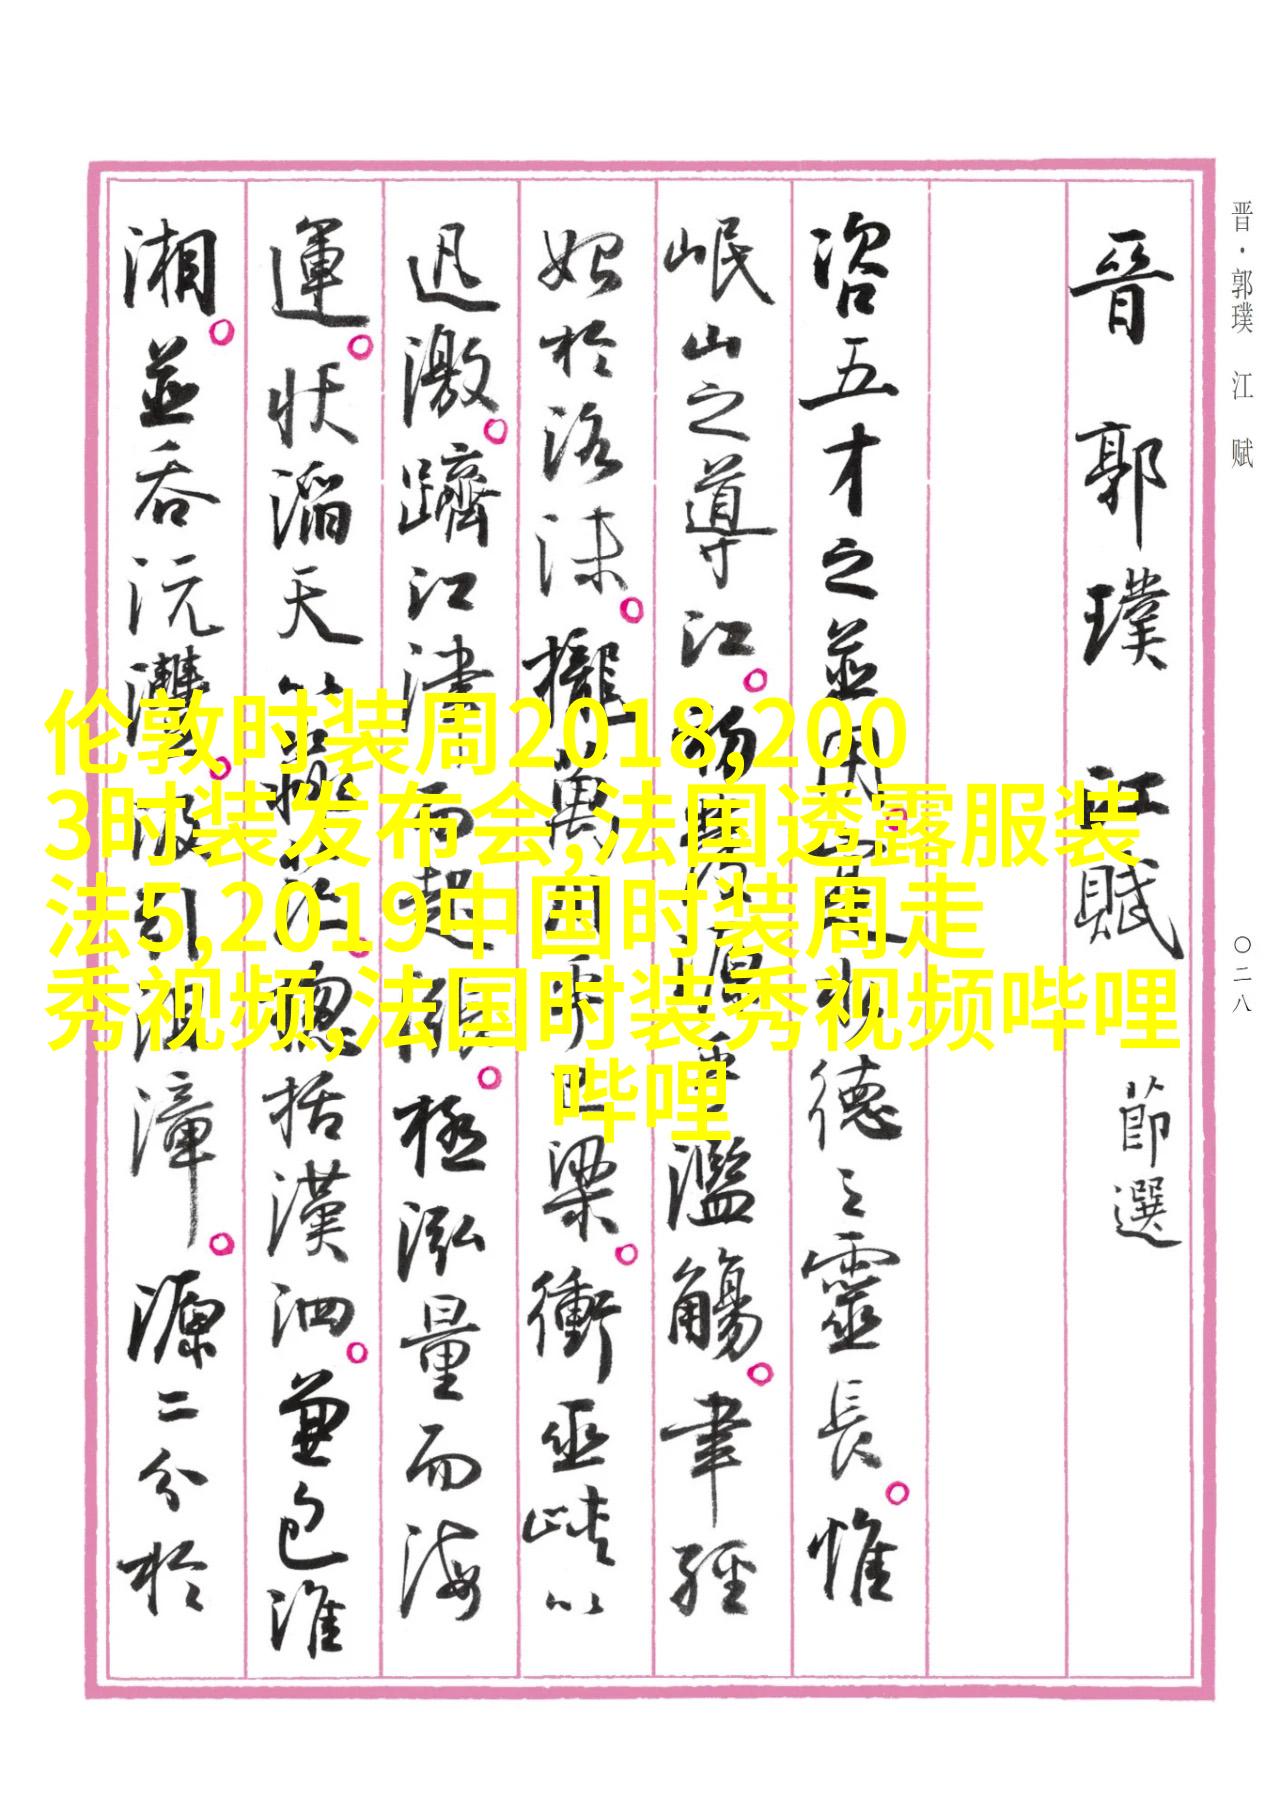 晋·郭璞 江 赋
〇二八
晉郭璞江賦節選
咨五才之並用。寔水德之靈長。惟
岷山之導江。初發源乎濫觴。聿經
始於洛沫。攏萬川乎巴梁。衝巫峽以
迅激。躋江津而起漲。極泓量而海
運。狀滔天以淼茫。總括漢泗。兼包淮
湘。並吞沅澧。汲引沮漳。源二分於
伦敦时装周2018,200
3时装发布会,法国透露服装
法5,2019中国时装周走
秀视频,法国时装秀视频哔哩
哔哩